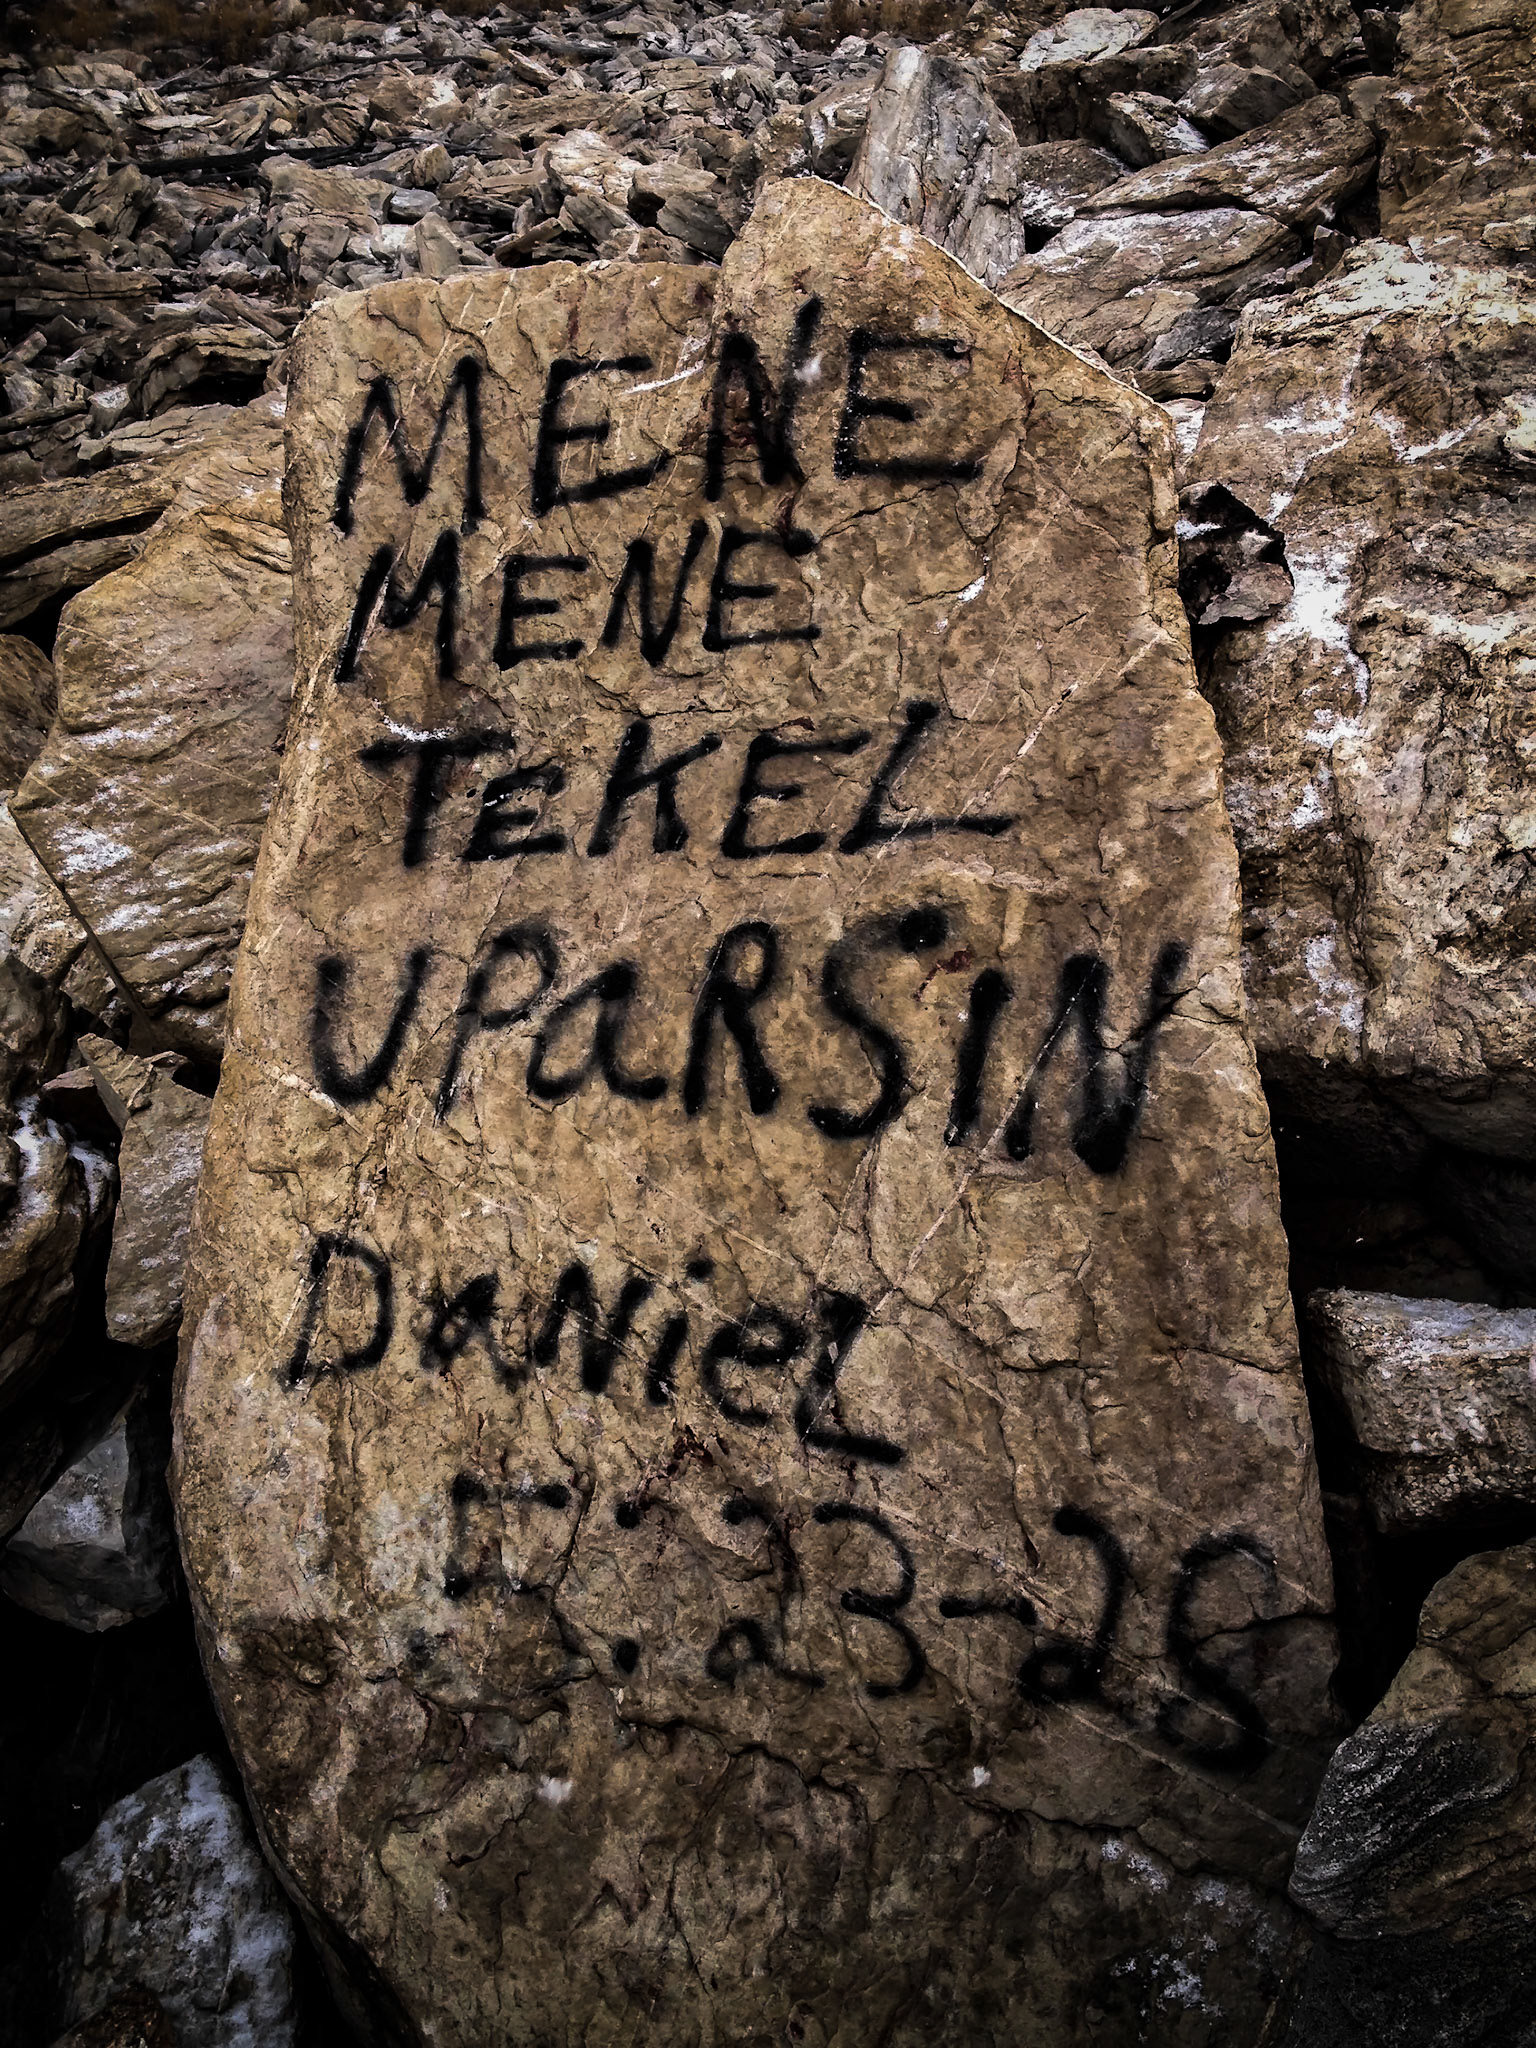 MENE
MENE
TeKEL
UPaRSiN
DaNieL
5:23-28